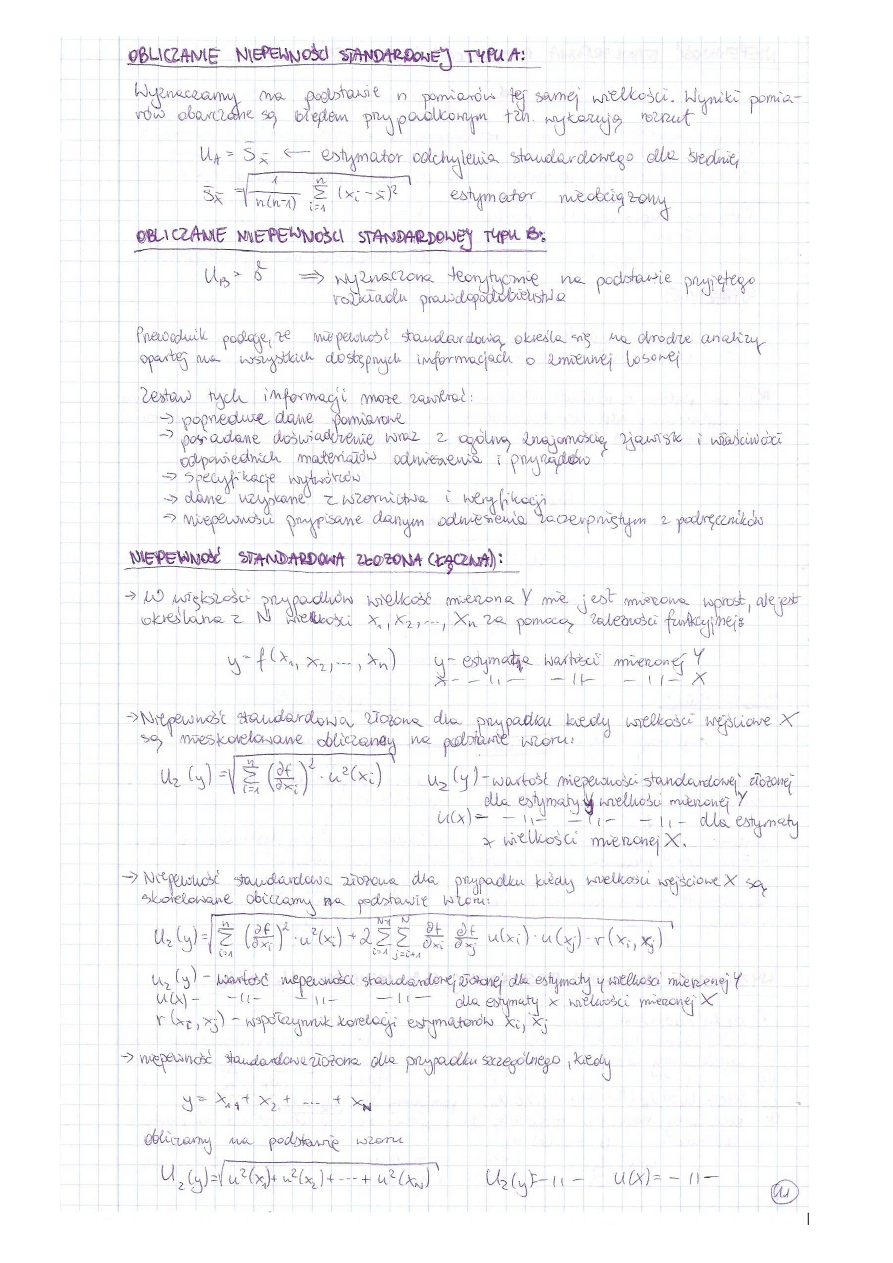 OBLICZANIE NIEPEWNOŚCI STANDARDOWEJ TYPU A:
Wyznaczamy na podstawie n pomiarów tej samej wielkości. Wyniki pomia-
rów obarczone są błędem przypadkowym tzn. wykazują rozrut
U_A = S_x̄ ← estymator odchylenia standardowego dla średniej
S_x̄ = √(1/(n(n-1)) Σ_{i=1}^{n} (x_i - x̄)²) estymator nieobciążony
OBLICZANIE NIEPEWNOŚCI STANDARDOWEJ TYPU B:
U_B = ⇒ wyznaczona teorytycznie na podstawie przyjętego
rozkładu prawdopodobieństwa
Przewodnik podaje, że niepewność standardową określa się na drodze analizy
opartej na wszystkich dostępnych informacjach o zmiennej losowej
Zestaw tych informacji może zawierać:
→ poprzednie dane pomiarowe
→ posiadane doświadczenie wraz z ogólną znajomością zjawisk i właściwości
odpowiednich materiałów odniesienia i przyrządów
→ specyfikacje wytwórców
→ dane uzyskane z wzornictwa i weryfikacji
→ niepewności przypisane danym odniesienia zaczerpniętym z podręczników
NIEPEWNOŚĆ STANDARDOWA ZŁOŻONA (ŁĄCZNA):
→ W większości przypadków wielkość mierzona Y nie jest mierzona wprost, ale jest
określana z N wielkości x₁, x₂, ..., Xn za pomocą zależności funkcyjnej:
y = f(x₁, x₂, ..., xn) y - estymata wartości mierzonej Y
x - - 11 - - 11 - - 11 - X
→ Niepewność standardowa złożona dla przypadku kiedy wielkości wejściowe X
są nieskorelowane obliczamy na podstawie wzoru:
U_z(y) = √(Σ_{i=1}^{n} (∂f/∂x_i)² · u²(x_i)) u_z(y) - wartość niepewności standardowej złożonej
dla estymaty y wielkości mierzonej Y
u(x) = - 11 - - 11 - - 11 - dla estymaty
x wielkości mierzonej X.
→ Niepewność standardowa złożona dla przypadku kiedy wielkości wejściowe X są
skorelowane obiczamy na podstawie wzoru:
U_z(y) = √(Σ_{i=1}^{n} (∂f/∂x_i)² · u²(x_i) + 2 Σ_{i=1}^{N-1} Σ_{j=i+1}^{N} ∂f/∂x_i ∂f/∂x_j u(x_i) · u(x_j) · r(x_i, x_j))
u_z(y) - wartość niepewności standardowej złożonej dla estymaty y wielkości mierzonej Y
u(x) - - 11 - - 11 - - 11 - dla estymaty x wielkości mierzonej X
r(x_i, x_j) - współczynnik korelacji estymatorów x_i, x_j
→ niepewność standardowa złożona dla przypadku szczególnego, kiedy
y = x₁ + x₂ + ... + x_N
obliczamy na podstawie wzoru
U_z(y) = √(u²(x₁) + u²(x₂) + ... + u²(x_N)) U_z(y) = - 11 - u(X) = - 11 -